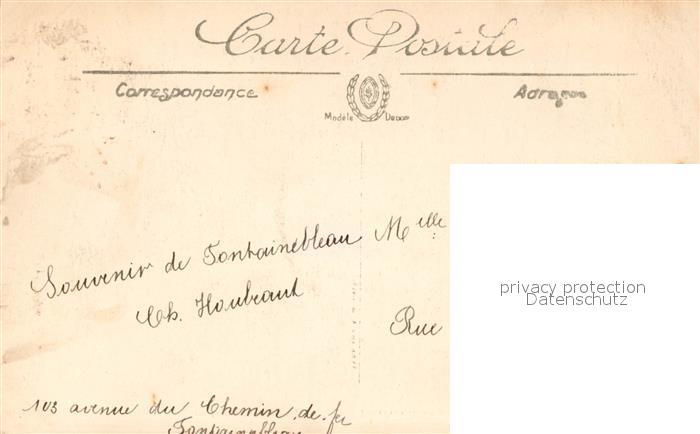 Carte Postale
Correspondance
Modèle
Souvenir de Fontainebleau
Ch. Houbraut
Melle
Rue
103 avenue du Chemin de fer
Fontainebleau
privacy protection
Datenschutz